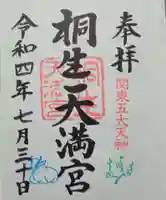 奉拝
関東五大天神
桐生天満宮
令和四年七月三十日